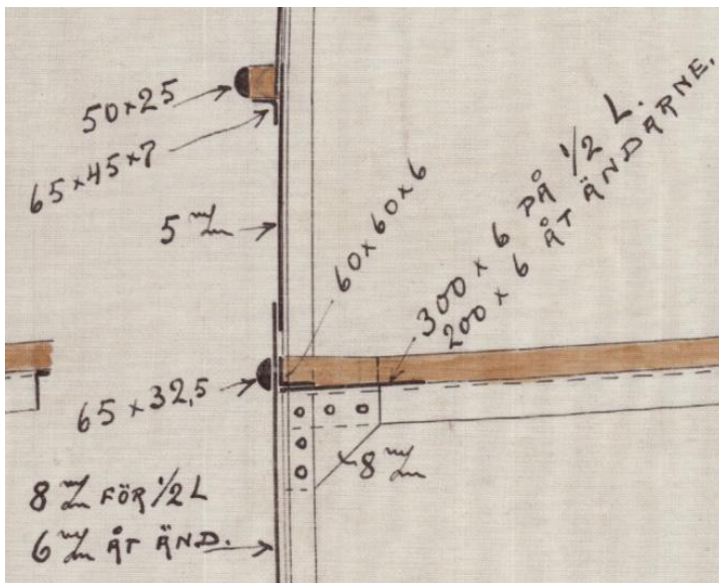 50×25
65×45×7
5 m/m
60×60×6
300 × 6 PÅ 1/2 L.
200 × 6 ÅT ÄNDARNE.
65×32,5
8 m/m
8 m/m FÖR 1/2 L
6 m/m ÅT ÄND.